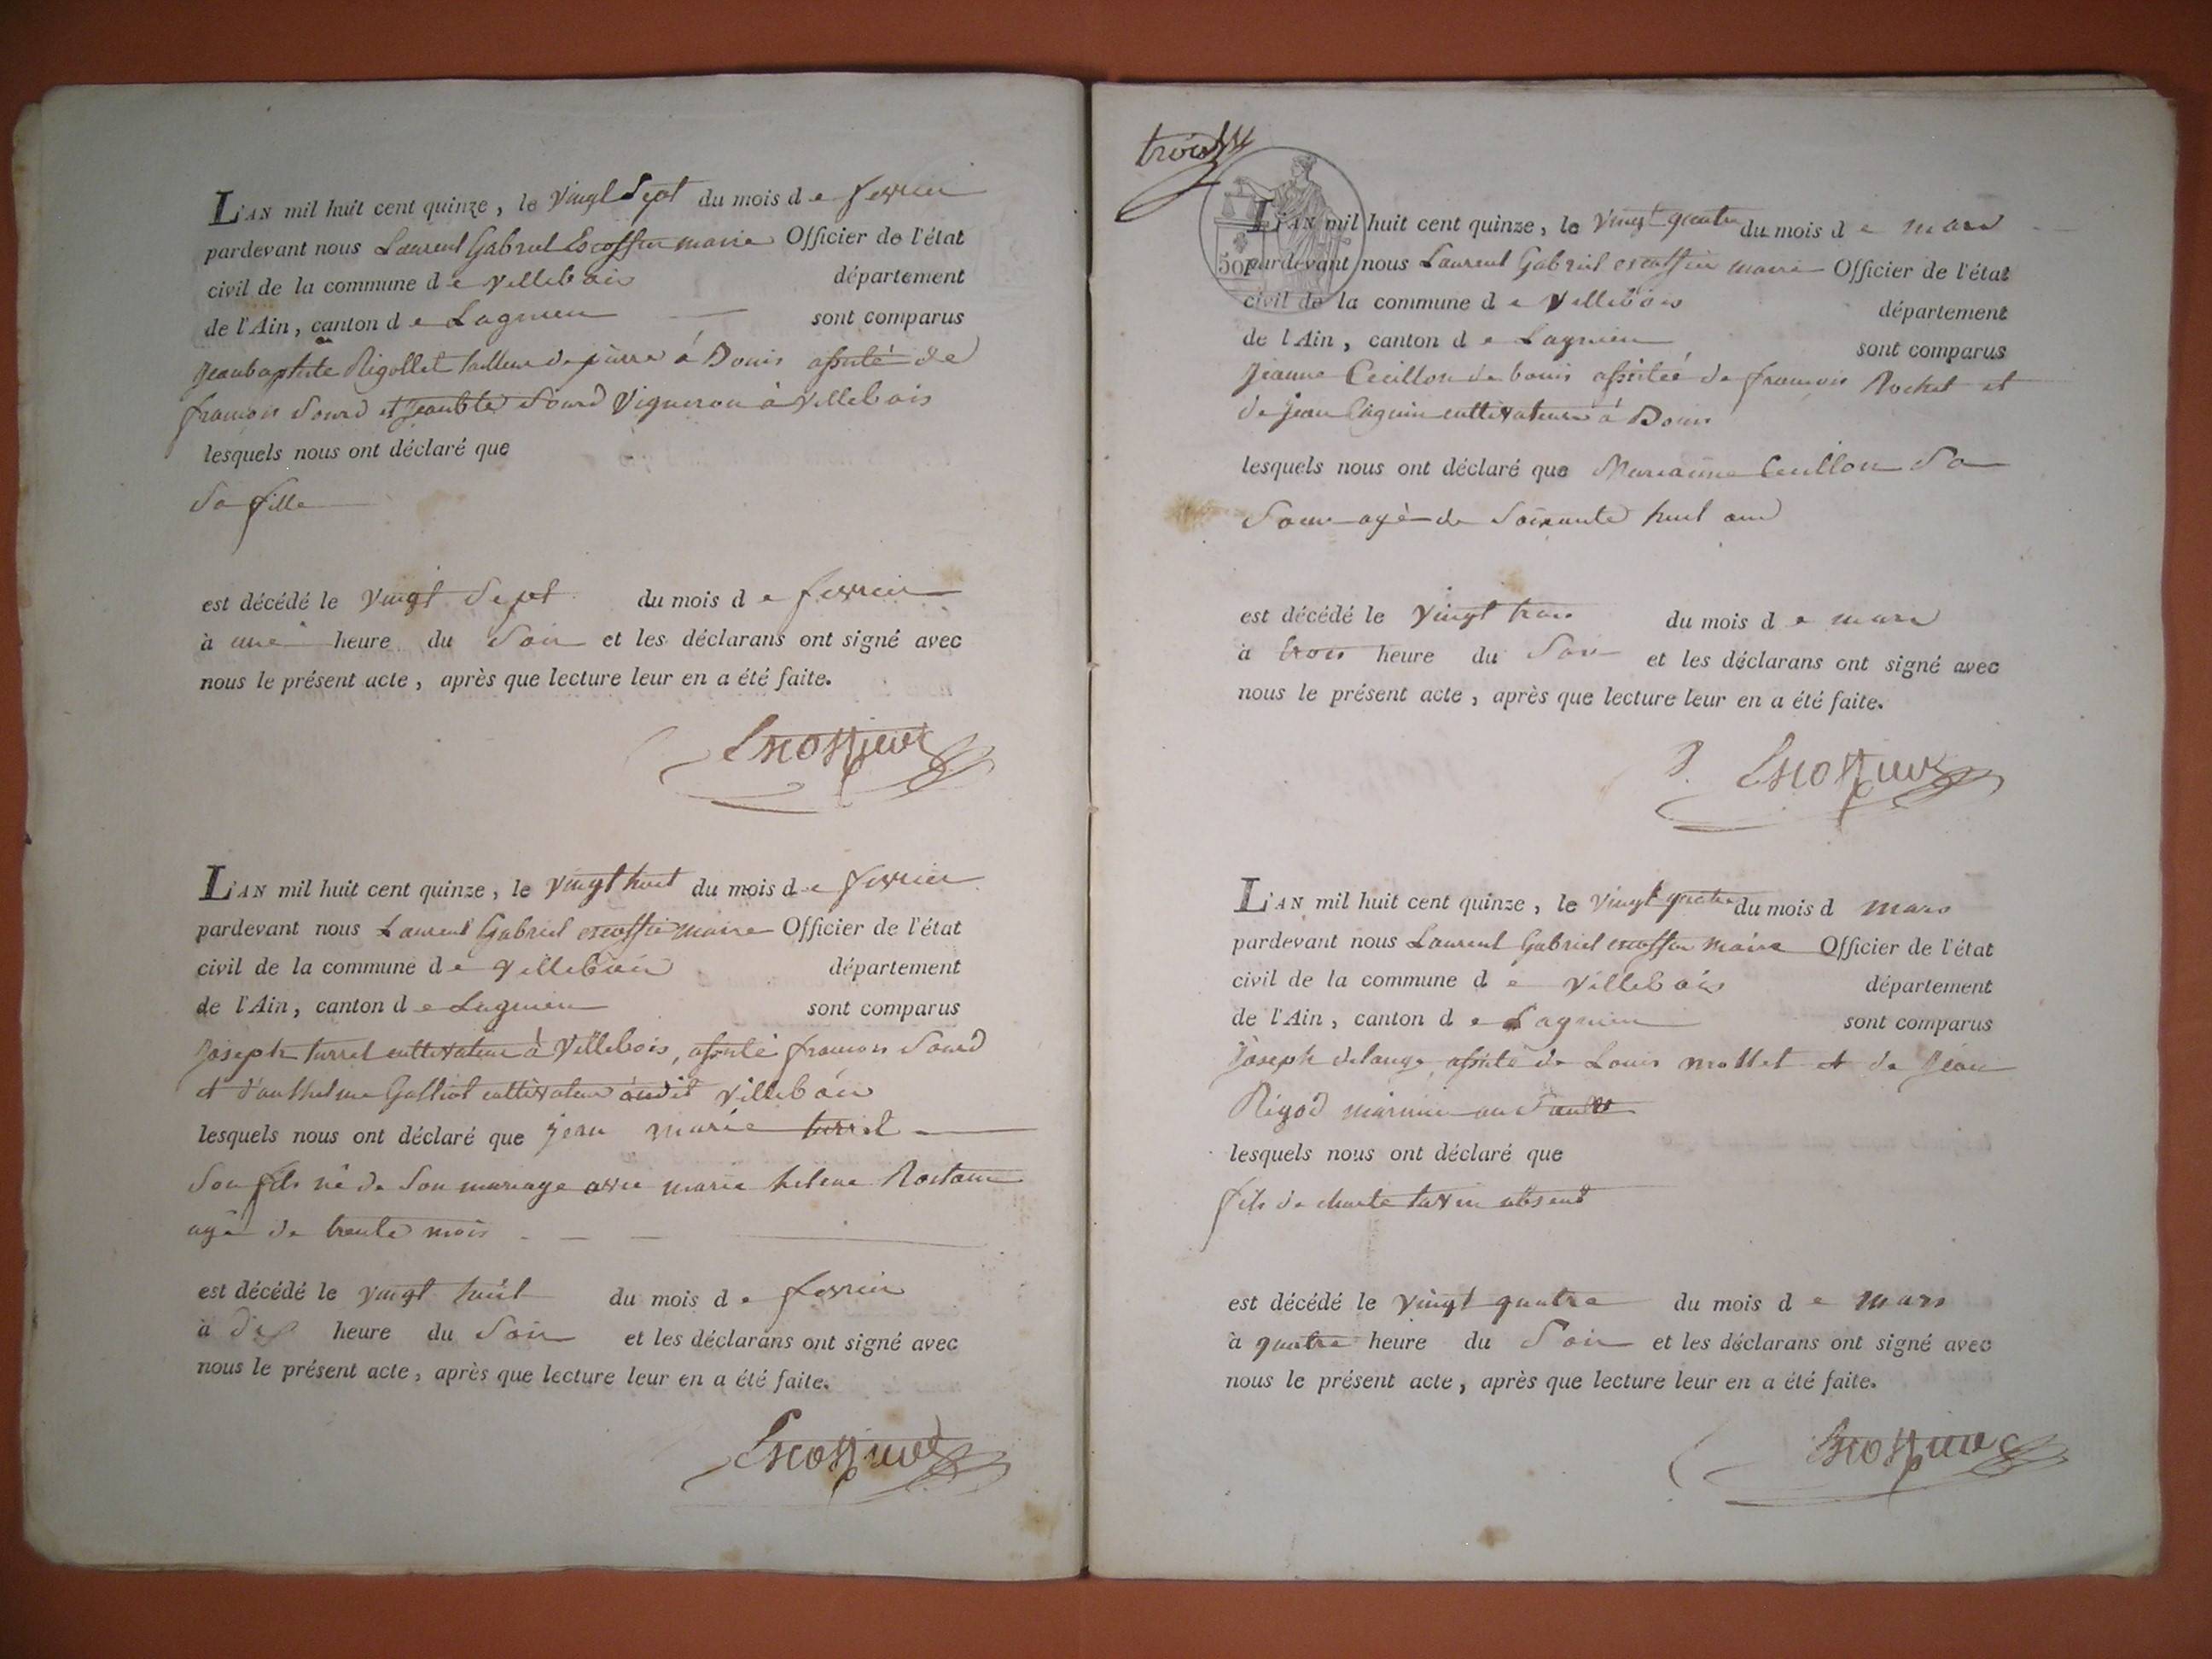 L'AN mil huit cent quinze, le vingt Sept du mois de fevrier
pardevant nous Laurent Gabriel Escoffier maire Officier de l'état
civil de la commune de villebois département
de l'Ain, canton de Lagnieu sont comparus
Jeanbaptiste Rigollet tailleur de pierre à Bouis assisté de
francois Sourd et Sourd Vigneron à Villebois
lesquels nous ont déclaré que
Sa fille
est décédé le vingt Sept du mois de fevrier
à une heure du Soir et les déclarans ont signé avec
nous le présent acte, après que lecture leur en a été faite.
Escoffier
L'AN mil huit cent quinze, le vingt huit du mois de fevrier
pardevant nous Laurent Gabriel escoffier maire Officier de l'état
civil de la commune de villebois département
de l'Ain, canton de Lagnieu sont comparus
Joseph turrel cultivateur à Villebois, assisté francois Sourd
et d'anthelme Galliot cultivateur audit villebois
lesquels nous ont déclaré que jean marie turrel
Son fils né de Son mariage avec marie helene Rostain
agé de trente mois
est décédé le vingt huit du mois de fevrier
à dix heure du Soir et les déclarans ont signé avec
nous le présent acte, après que lecture leur en a été faite.
Escoffier
trois
L'AN mil huit cent quinze, le vingt quatre du mois de mars
50 pardevant nous Laurent Gabriel escoffier maire Officier de l'état
civil de la commune de Villebois département
de l'Ain, canton de Lagnieu sont comparus
Jeanne Cecillon de bouis assistée de francois Rochet et
de Jean cultivateurs à Bouis
lesquels nous ont déclaré que Marianne Cecillon Sa
Soeur agée de Soixante huit ans
est décédé le vingt trois du mois de mars
à trois heure du Soir et les déclarans ont signé avec
nous le présent acte, après que lecture leur en a été faite.
Escoffier
L'AN mil huit cent quinze, le vingt quatre du mois d mars
pardevant nous Laurent Gabriel escoffier maire Officier de l'état
civil de la commune de villebois département
de l'Ain, canton de Lagnieu sont comparus
Joseph delange assisté de Louis mollet et de Jean
Rigod marinier au Sault
lesquels nous ont déclaré que
fils de absent
est décédé le vingt quatre du mois de mars
à quatre heure du Soir et les déclarans ont signé avec
nous le présent acte, après que lecture leur en a été faite.
Escoffier